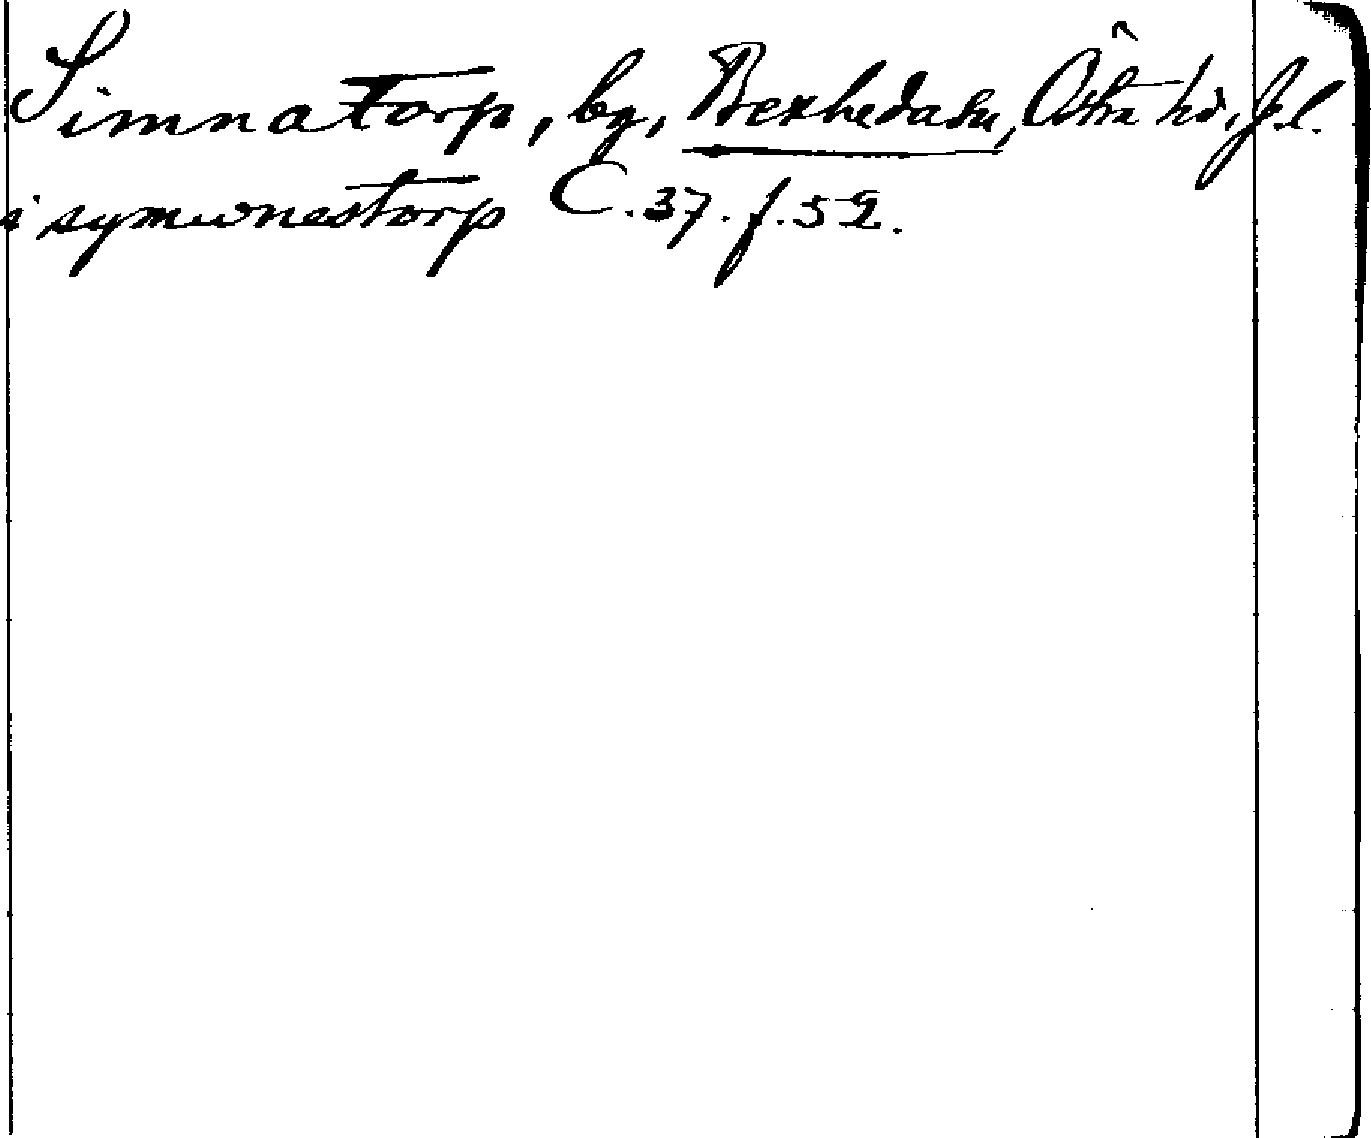 Simnatorp, by, Bexheda sn, Östra hd, J.l.
i symwnestorp C.37.f.52.